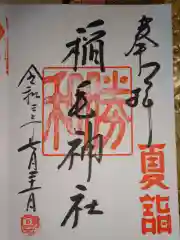 奉拝
夏詣
稲毛神社
勝和
令和三年七月三十一日